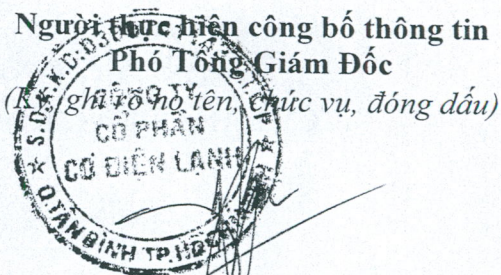 Người thực hiện công bố thông tin
Phó Tổng Giám Đốc
(Ký, ghi rõ họ tên, chức vụ, đóng dấu)
CÔNG TY
CỔ PHẦN
CƠ ĐIỆN LẠNH
Q.TÂN BÌNH TP.H